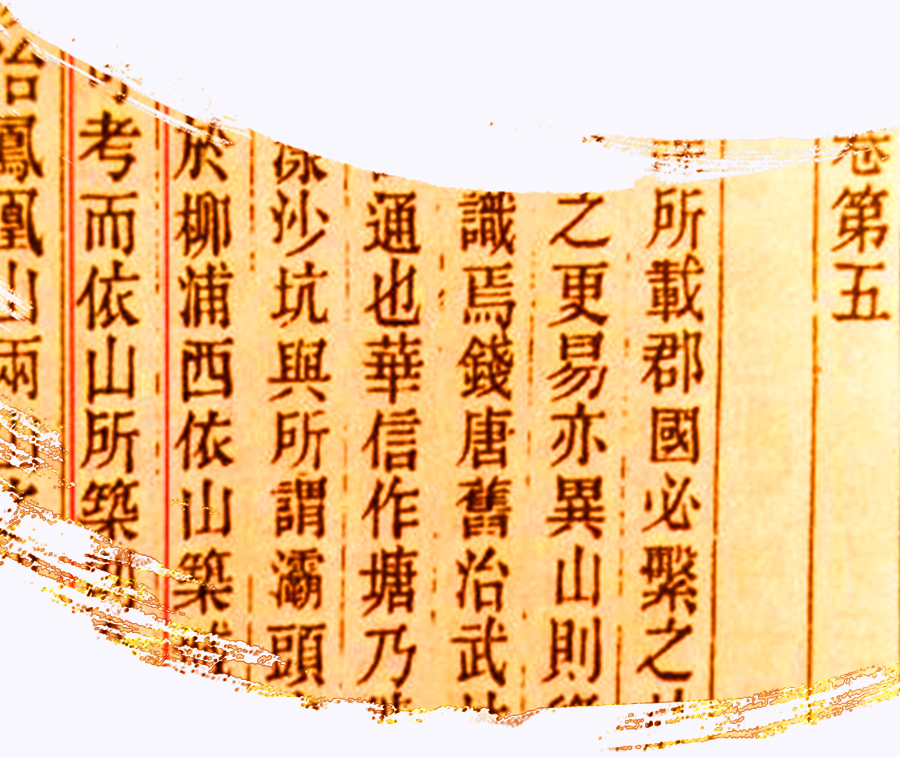 卷第五
所載郡國必繫之
之更易亦異山則
識焉錢唐舊治武
通也華信作塘乃
沙坑與所謂灞頭
於柳浦西依山築
考而依山所築
治鳳凰山兩